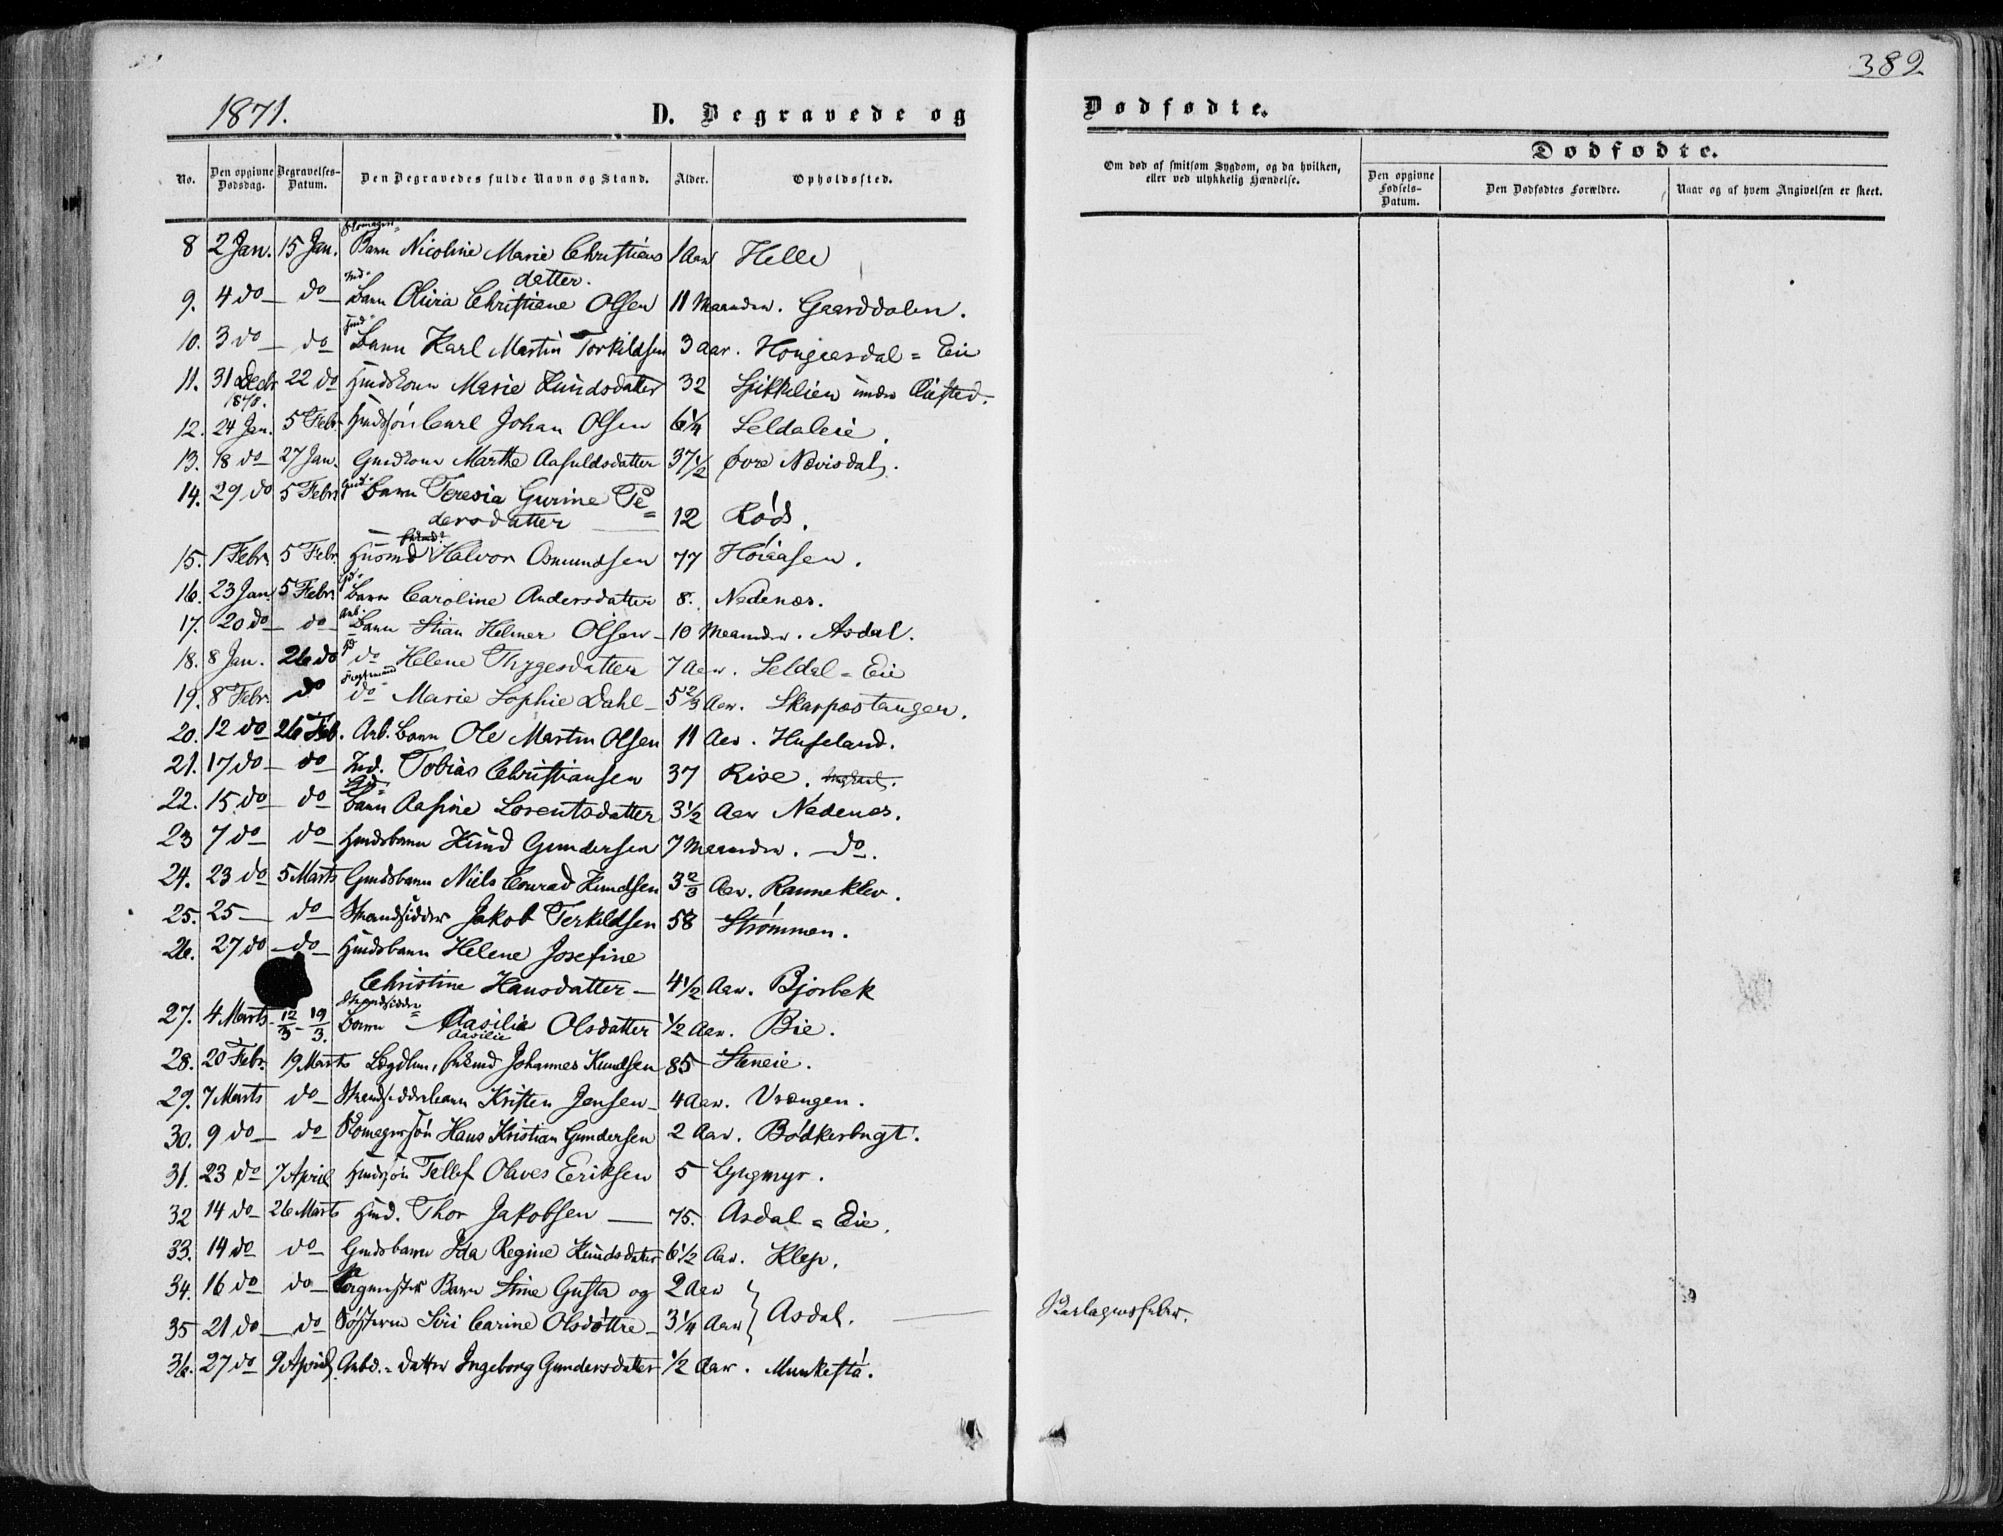 1871.
D. Begravede og
Dødfødte.
389
No. Den opgivne Dødsdag. Begravelses-Datum. Den Begravedes fulde Navn og Stand. Alder. Opholdssted.
Om død af smitsom Sygdom, og da hvilken, eller ved ulykkelig Hændelse.
Dødfødte.
Den opgivne Fødsels-Datum. Den Dødfødtes Forældre. Naar og af hvem Angivelsen er skeet.
8 2 Jan. 15 Jan. Barn Nicoline Marie Christians
datter. 1 Aar Helle
9. 4 do do Barn Olivia Christiane Olsen 11 Maaneder. Gaarddalen.
10. 3 do do Barn Karl Martin Torkildsen 3 Aar. Eie
11. 31 Decbr 1870. 22 do Hmdskone Marie Knudsdatter 32 under
12. 24 Jan. 5 Febr. Hmdssøn Carl Johan Olsen 6 1/4 Seldaleie.
13. 18 do 27 Jan. Gmdkone Marthe Aasuldsdatter 37 1/2 Øvre Nævisdal.
14. 29 do 5 Febr Gmd. Barn Teresia Gurine Pe=
dersdatter 12 Rød.
15. 1 Febr. 5 Febr. Husmd Halvor Osmundsen 77 Høiaasen.
16. 23 Jan. 5 Febr Barn Caroline Andersdatter 8. Nedenæs.
17. 20 do do Arb. Barn Stian Helmer Olsen 10 Maaneder. Asdal.
18. 8 Jan. 26 do do Helene Thygesdatter 7 Aar. Seldal = Eie
19. 8 Febr. do do Marie Sophie Dahl 5 2/3 Aar. Skarpæstangen.
20. 12 do 26 Feb. Arb. Barn Ole Martin Olsen 11 Aar. Huseland.
21. 17 do do Ind. Tobias Christiansen 37 Rise.
22. 15 do do Barn Aasine Lorentsdatter 3 1/2 Aar Nedenæs.
23 7 do do Hmdsbarn Knud Gundersen 7 Maaneder. do.
24. 23 do 5 Marts Gmdsbarn Niels Conrad Knudsen 3 2/3 Aar. Ranneklev.
25. 25 do Strandsidder Jakob Terkildsen 58 Strømmen.
26. 27 do do Hmdsbarn Helene Josefine
Christine Hansdatter 4 1/2 Aar. Bjorbek
27. 4 Marts 12/3 - 19/3. Strandsidder= Barn Aasilie Olsdatter 1/2 Aar. Bie.
Aasilie
28. 20 Febr. 19 Marts Lægdlem, Johannes Knudsen 85 Steneie.
29. 7 Marts do Strandsidderbarn Kristen Jensen 4 Aar. Vrængen.
30. 9 do do Skomagersøn Hans Kristian Gundersen 2 Aar. Bødkerbugt.
31. 23 do 7 April Hmdssøn Tellef Olaves Eriksen 5 Lyngmyr.
32 14 do 26 Marts Hmd. Thor Jakobsen 75. Asdal = Eie.
33. 14 do do Gmdsbarn Ida Regine Knudsdatter 6 1/2 Aar. Klep.
34. 16 do do Barn Stine Gusta og 2 Aar
35 21 do do Søsteren Siri Carine Olsdøttre 3 1/4 Aar } Asdal. Skarlagensfeber.
36. 27 do 9 April Arbd.= datter Ingeborg Gundersdatter 1/2 Aar. Munkestø.